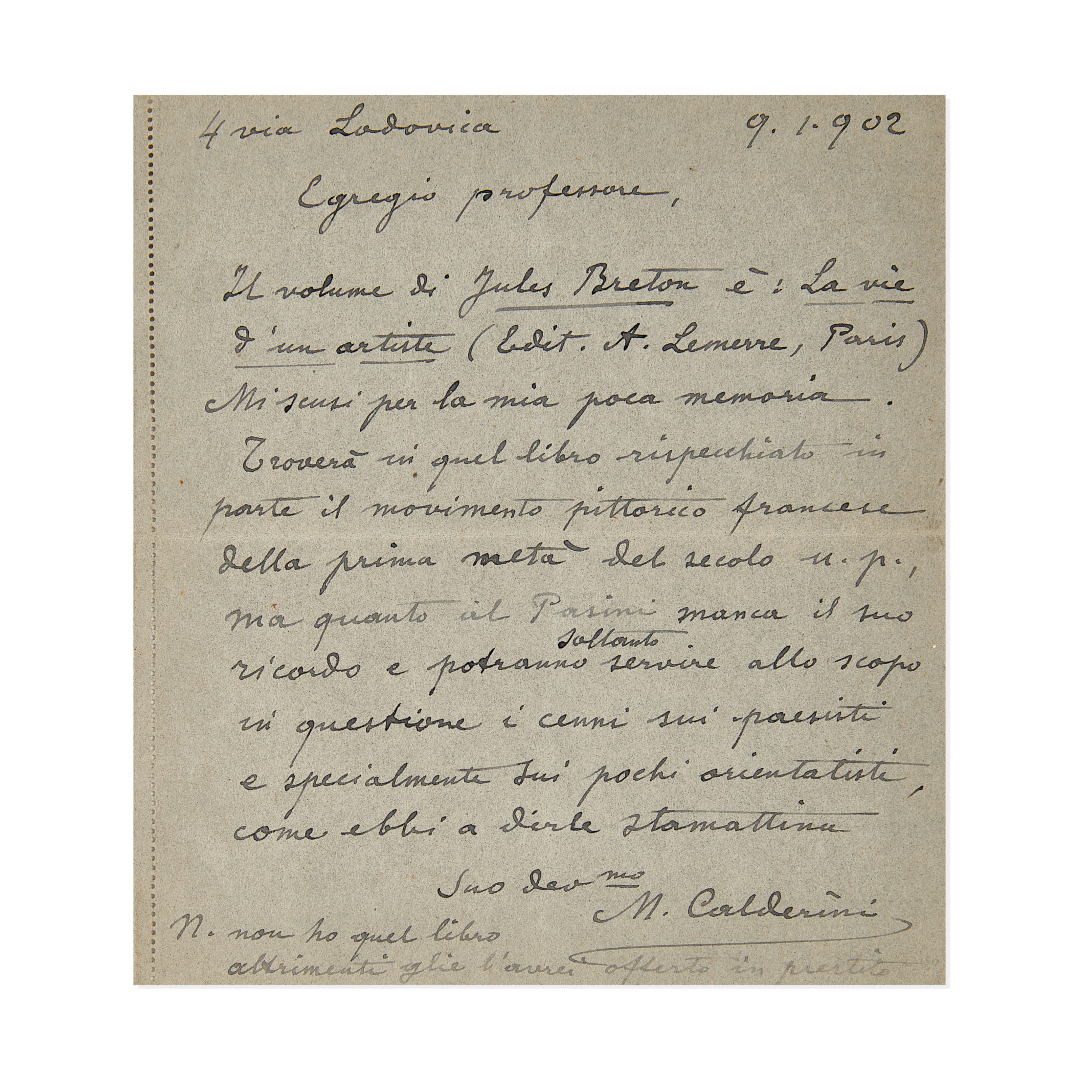 4 via Lodovica 9. 1. 902
Egregio professore,
Il volume di Jules Breton è: La vie
d'un artiste (Edit. A. Lemerre, Paris)
Mi scusi per la mia poca memoria.
Troverà in quel libro rispecchiato in
parte il movimento pittorico francese
della prima metà del secolo u. p.,
ma quanto al Pasini manca il suo
soltanto
ricordo e potranno servire allo scopo
in questione i cenni sui paesisti
e specialmente sui pochi orientalisti,
come ebbi a dirle stamattina
Suo dev mo
M. Calderini
N. non ho quel libro
altrimenti glie l'avrei offerto in prestito